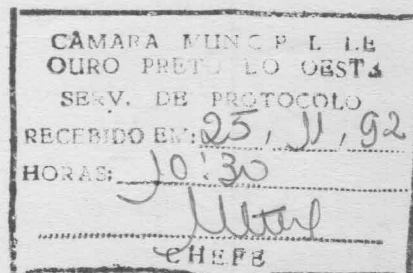 CÂMARA MUNICIPAL DE
OURO PRETO DO OESTE
SERV. DE PROTOCOLO
RECEBIDO EM: 25, 11, 92
HORAS: 10:30
CHEFE